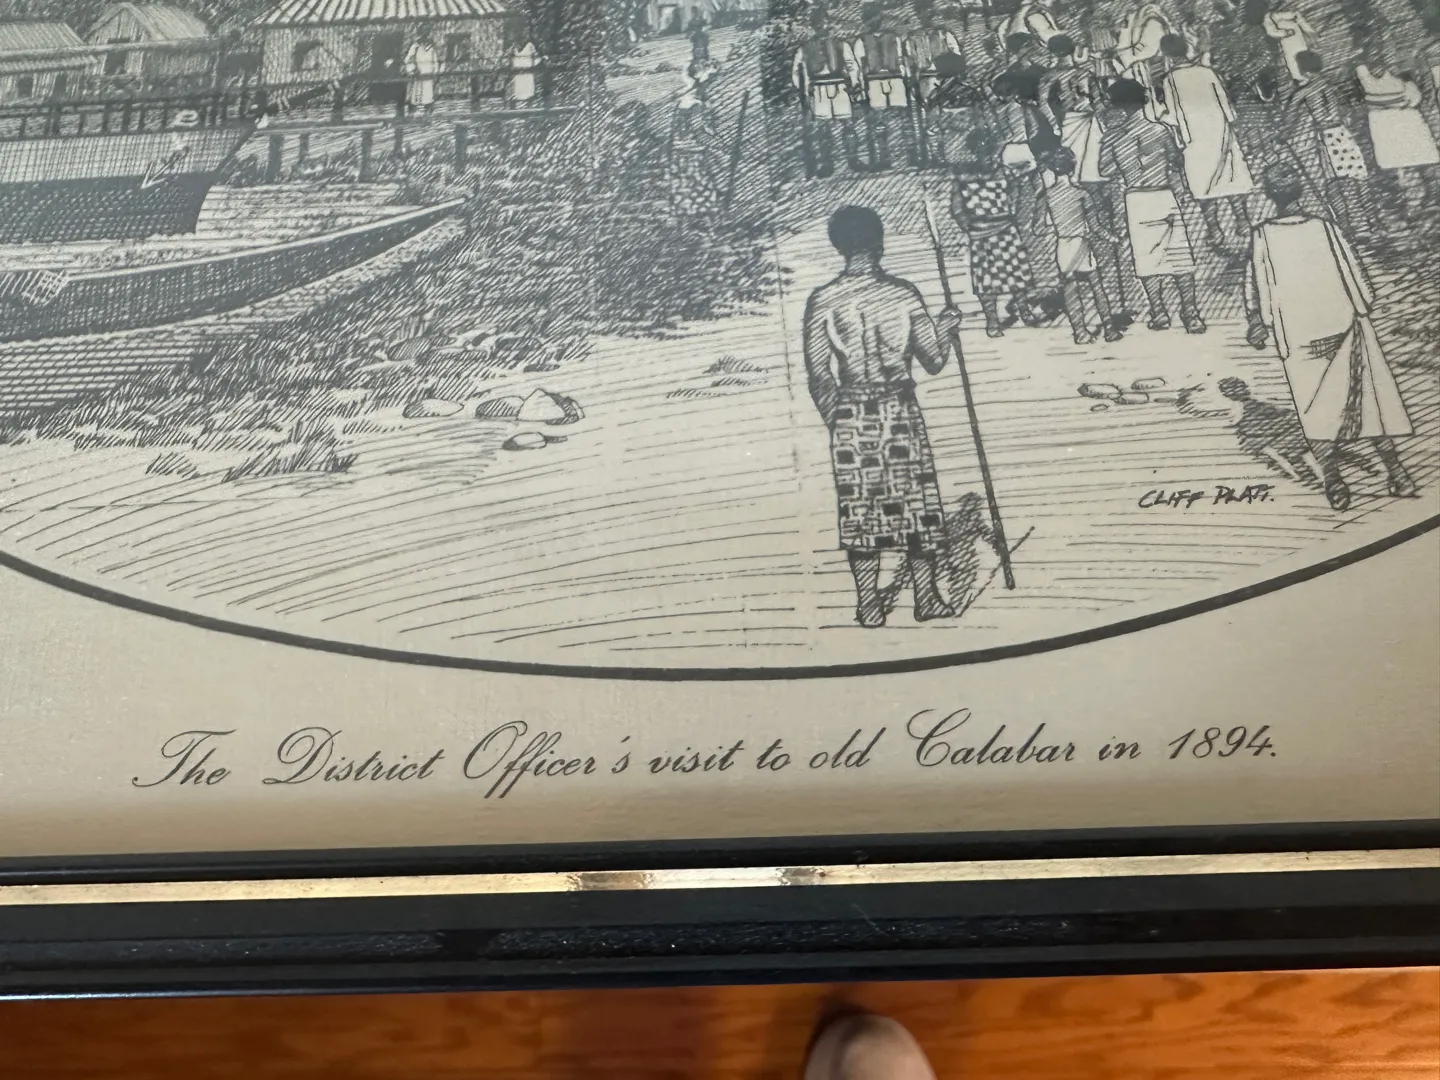 CLIFF PLATT.
The District Officer's visit to old Calabar in 1894.